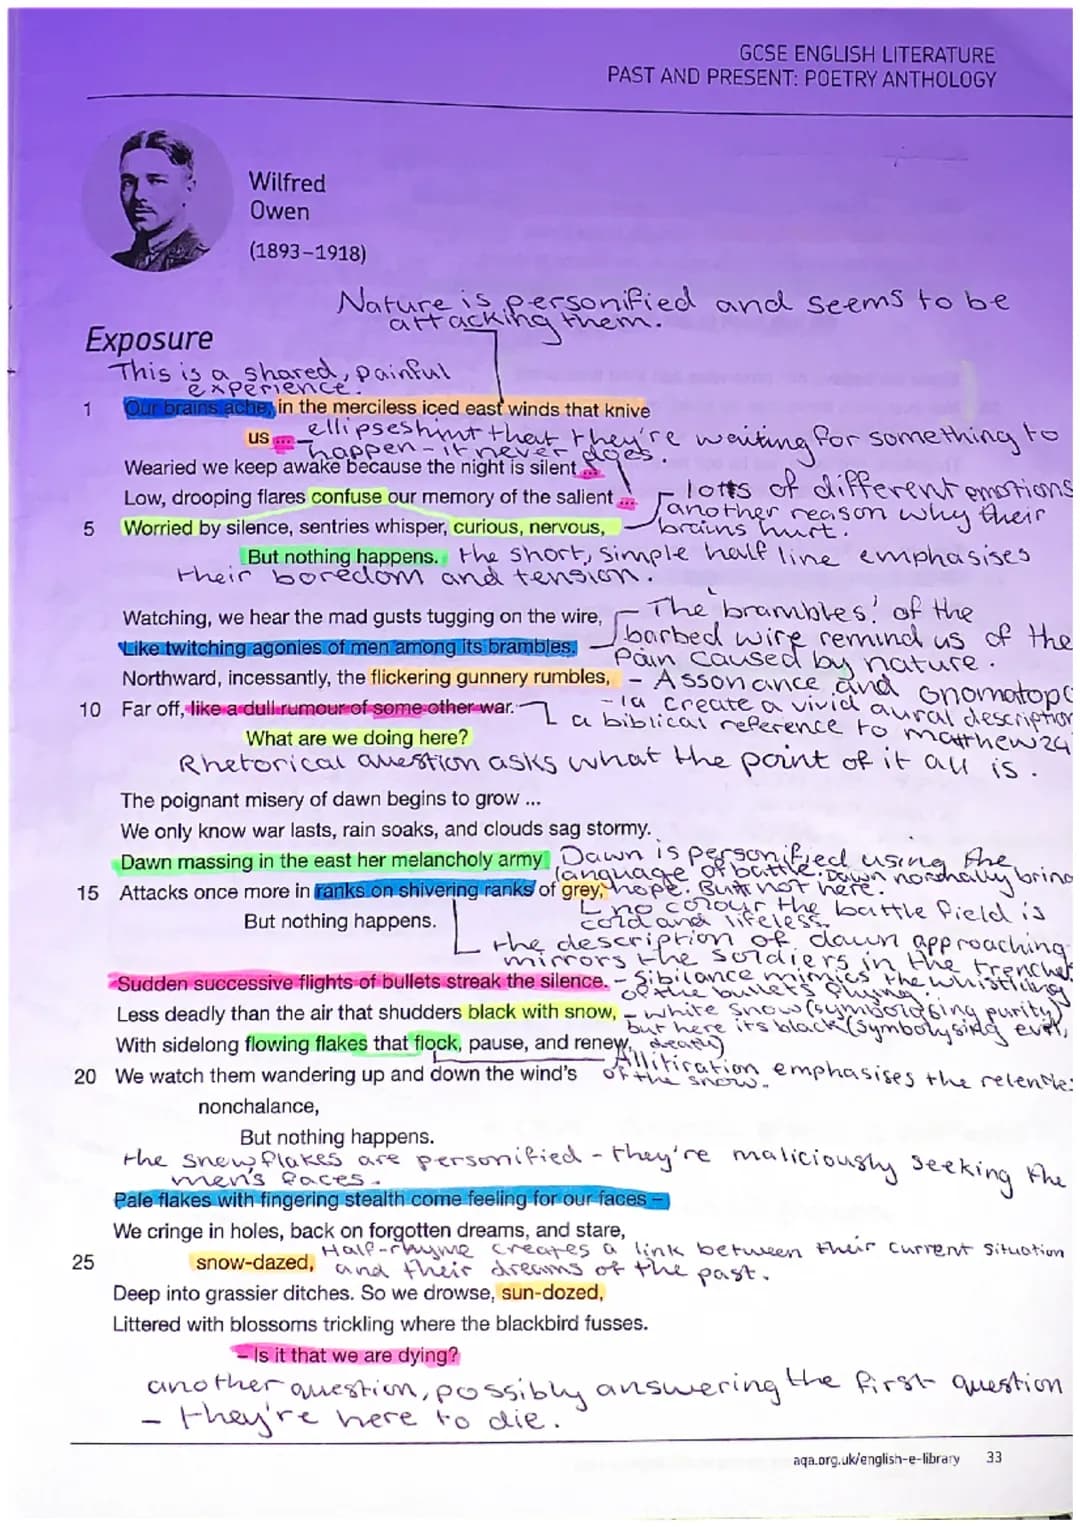 GCSE ENGLISH LITERATURE
PAST AND PRESENT: POETRY ANTHOLOGY
Wilfred
Owen
(1893–1918)
Nature is personified and seems to be
attacking them.
Exposure
This is a shared, painful
experience.
1 Our brains ache, in the merciless iced east winds that knive
us ...
ellipses hint that they're waiting for something to
happen - it never does.
Wearied we keep awake because the night is silent ...
Low, drooping flares confuse our memory of the salient ...
lotts of different emotions
another reason why their
brains hurt.
5 Worried by silence, sentries whisper, curious, nervous,
But nothing happens. the short, simple half line emphasises
their boredom and tension.
Watching, we hear the mad gusts tugging on the wire,
The 'brambles' of the
barbed wire remind us of the
pain caused by nature.
Like twitching agonies of men among its brambles.
Northward, incessantly, the flickering gunnery rumbles,
- Assonance and onomatopo
-ia create a vivid aural description
10 Far off, like a dull rumour of some other war.
a biblical reference to matthew 24
What are we doing here?
Rhetorical question asks what the point of it all is.
The poignant misery of dawn begins to grow ...
We only know war lasts, rain soaks, and clouds sag stormy.
Dawn massing in the east her melancholy army
Dawn is personified using the
language of battle. Dawn normally bring
hope. But not here.
15 Attacks once more in ranks on shivering ranks of grey,
no colour the battle field is
cold and lifeless.
But nothing happens.
the description of dawn approaching
mirrors the soldiers in the trenches
Sudden successive flights of bullets streak the silence.
- Sibilance mimics the whistling
of the bullets flying.
Less deadly than the air that shudders black with snow,
- white snow (symbolising purity)
but here its black (symbolysing evil,
death)
With sidelong flowing flakes that flock, pause, and renew,
Allitiration emphasises the relentles
of the snow.
20 We watch them wandering up and down the wind's
nonchalance,
But nothing happens.
the snowflakes are personified - they're maliciously seeking the
men's faces.
Pale flakes with fingering stealth come feeling for our faces –
We cringe in holes, back on forgotten dreams, and stare,
25 snow-dazed,
Half-rhyme creates a link between their current situation
and their dreams of the past.
Deep into grassier ditches. So we drowse, sun-dozed,
Littered with blossoms trickling where the blackbird fusses.
– Is it that we are dying?
another question, possibly answering the first question
- they're here to die.
aqa.org.uk/english-e-library 33